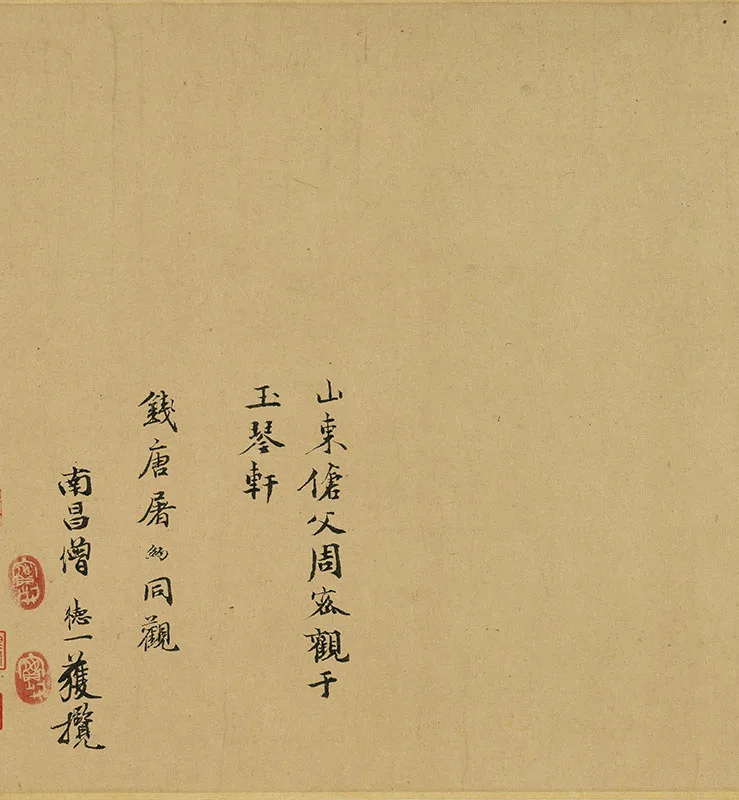 山東傖父周密觀于
玉琴軒
錢唐屠約同觀
南昌僧德一獲攬